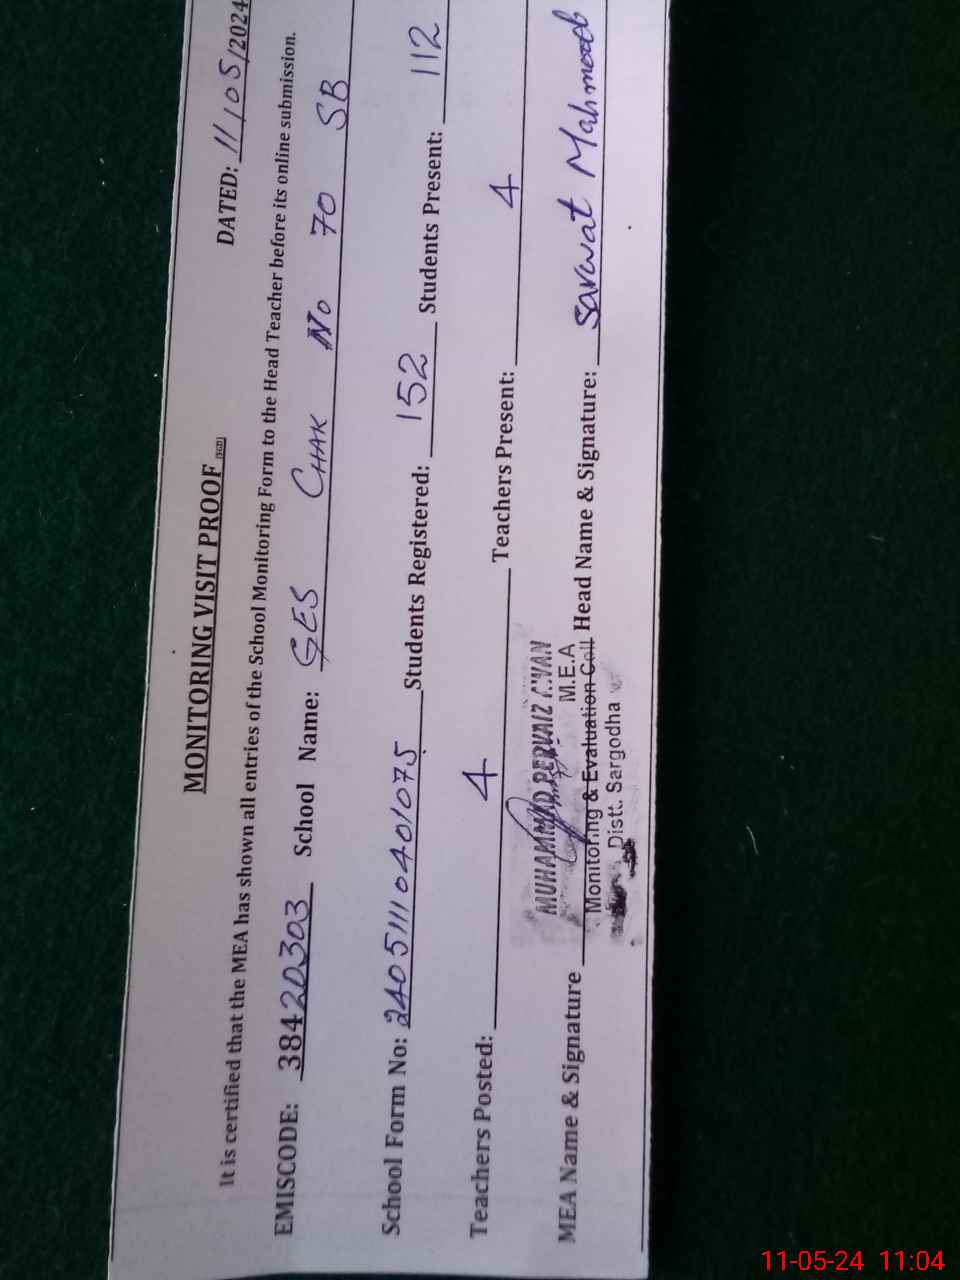 MONITORING VISIT PROOF (SGD)
DATED: 11/05/2024
It is certified that the MEA has shown all entries of the School Monitoring Form to the Head Teacher before its online submission.
EMISCODE: 38420303 School Name: GES CHAK No 70 SB
School Form No: 240511110401075 Students Registered: 152 Students Present: 112
Teachers Posted: 4 Teachers Present: 4
MUHAMMAD PERVAIZ AWAN
M.E.A
MEA Name & Signature Monitoring & Evaluation Cell Head Name & Signature: Sarwat Mahmood
Distt. Sargodha
11-05-24 11:04